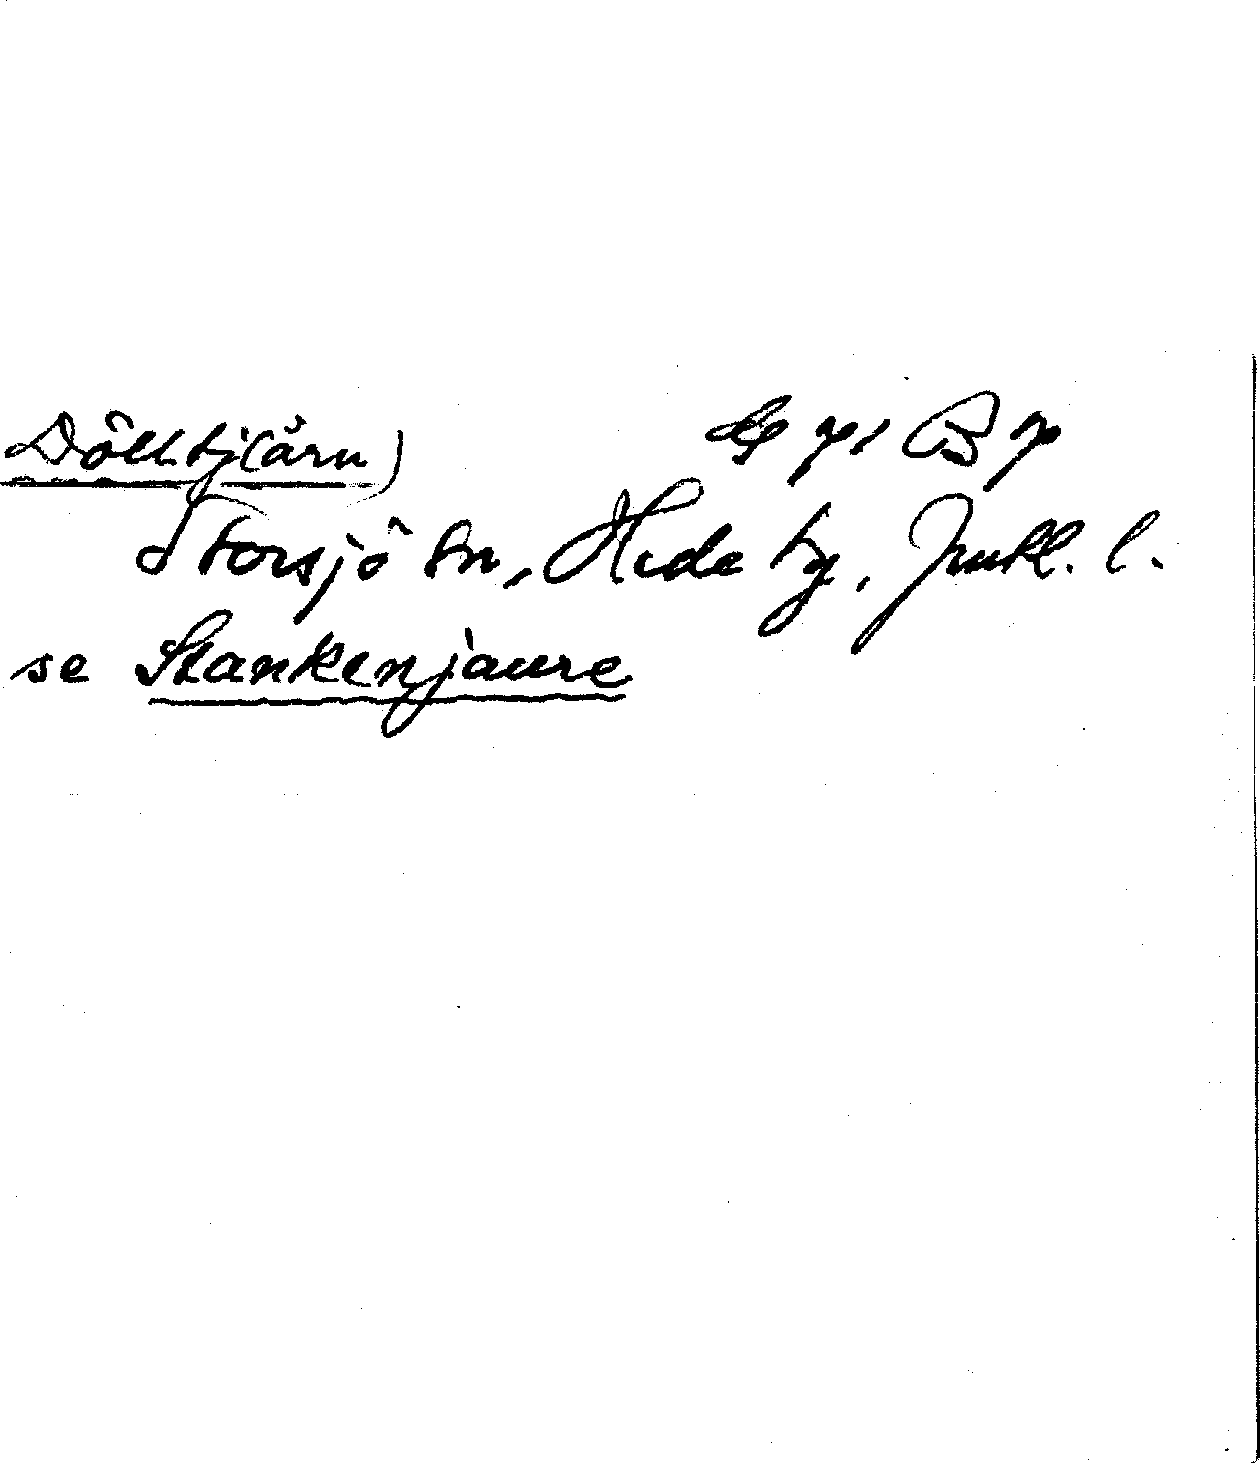 Dölltj(ärn)
Storsjö sn, Hede tg, Jmtl. l.
se Stankenjaure